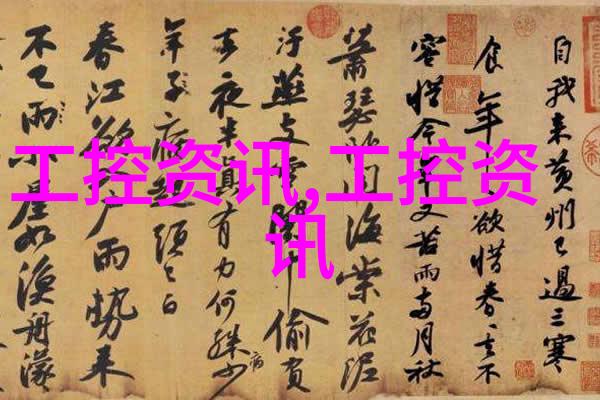 工控资讯,工控资
讯
自我来黄州已過三寒
食年年欲惜春春去不
容惜今年又苦雨兩月秋
蕭瑟臥聞海棠花泥
汙燕支雪闇中偷負
去夜半真有力何殊少
病
年子病起頭已白
春江欲入户雨勢来
不已雨小屋如漁舟濛